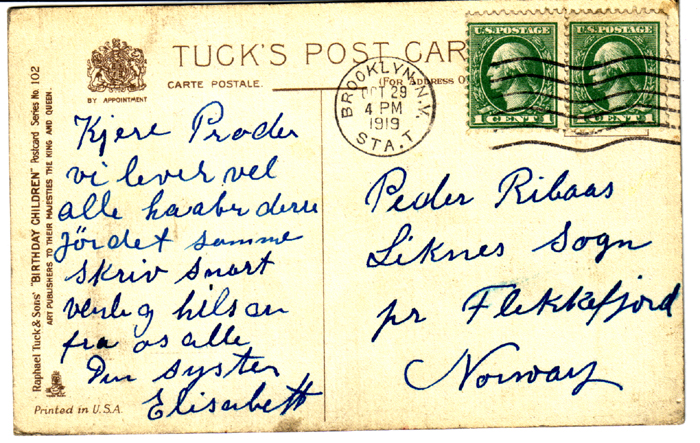 TUCK'S POST CAR
CARTE POSTALE.
(For Address O
BY APPOINTMENT
Raphael Tuck & Sons' "BIRTHDAY CHILDREN" Postcard Series No. 102
ART PUBLISHERS TO THEIR MAJESTIES THE KING AND QUEEN.
Printed in U.S.A.
BROOKLYN, N.Y.
OCT 29
4 PM
1919
STA. T
U.S. POSTAGE
1 CENT 1
U.S. POSTAGE
1 CENT 1
Kjere Broder
vi lever vel
alle haaber dere
Jör det samme
skriv snart
venlig hilsan
fra os alle
Din syster
Elisabett
Peder Ribaas
Liknes Sogn
pr Flekkefjord
Norway